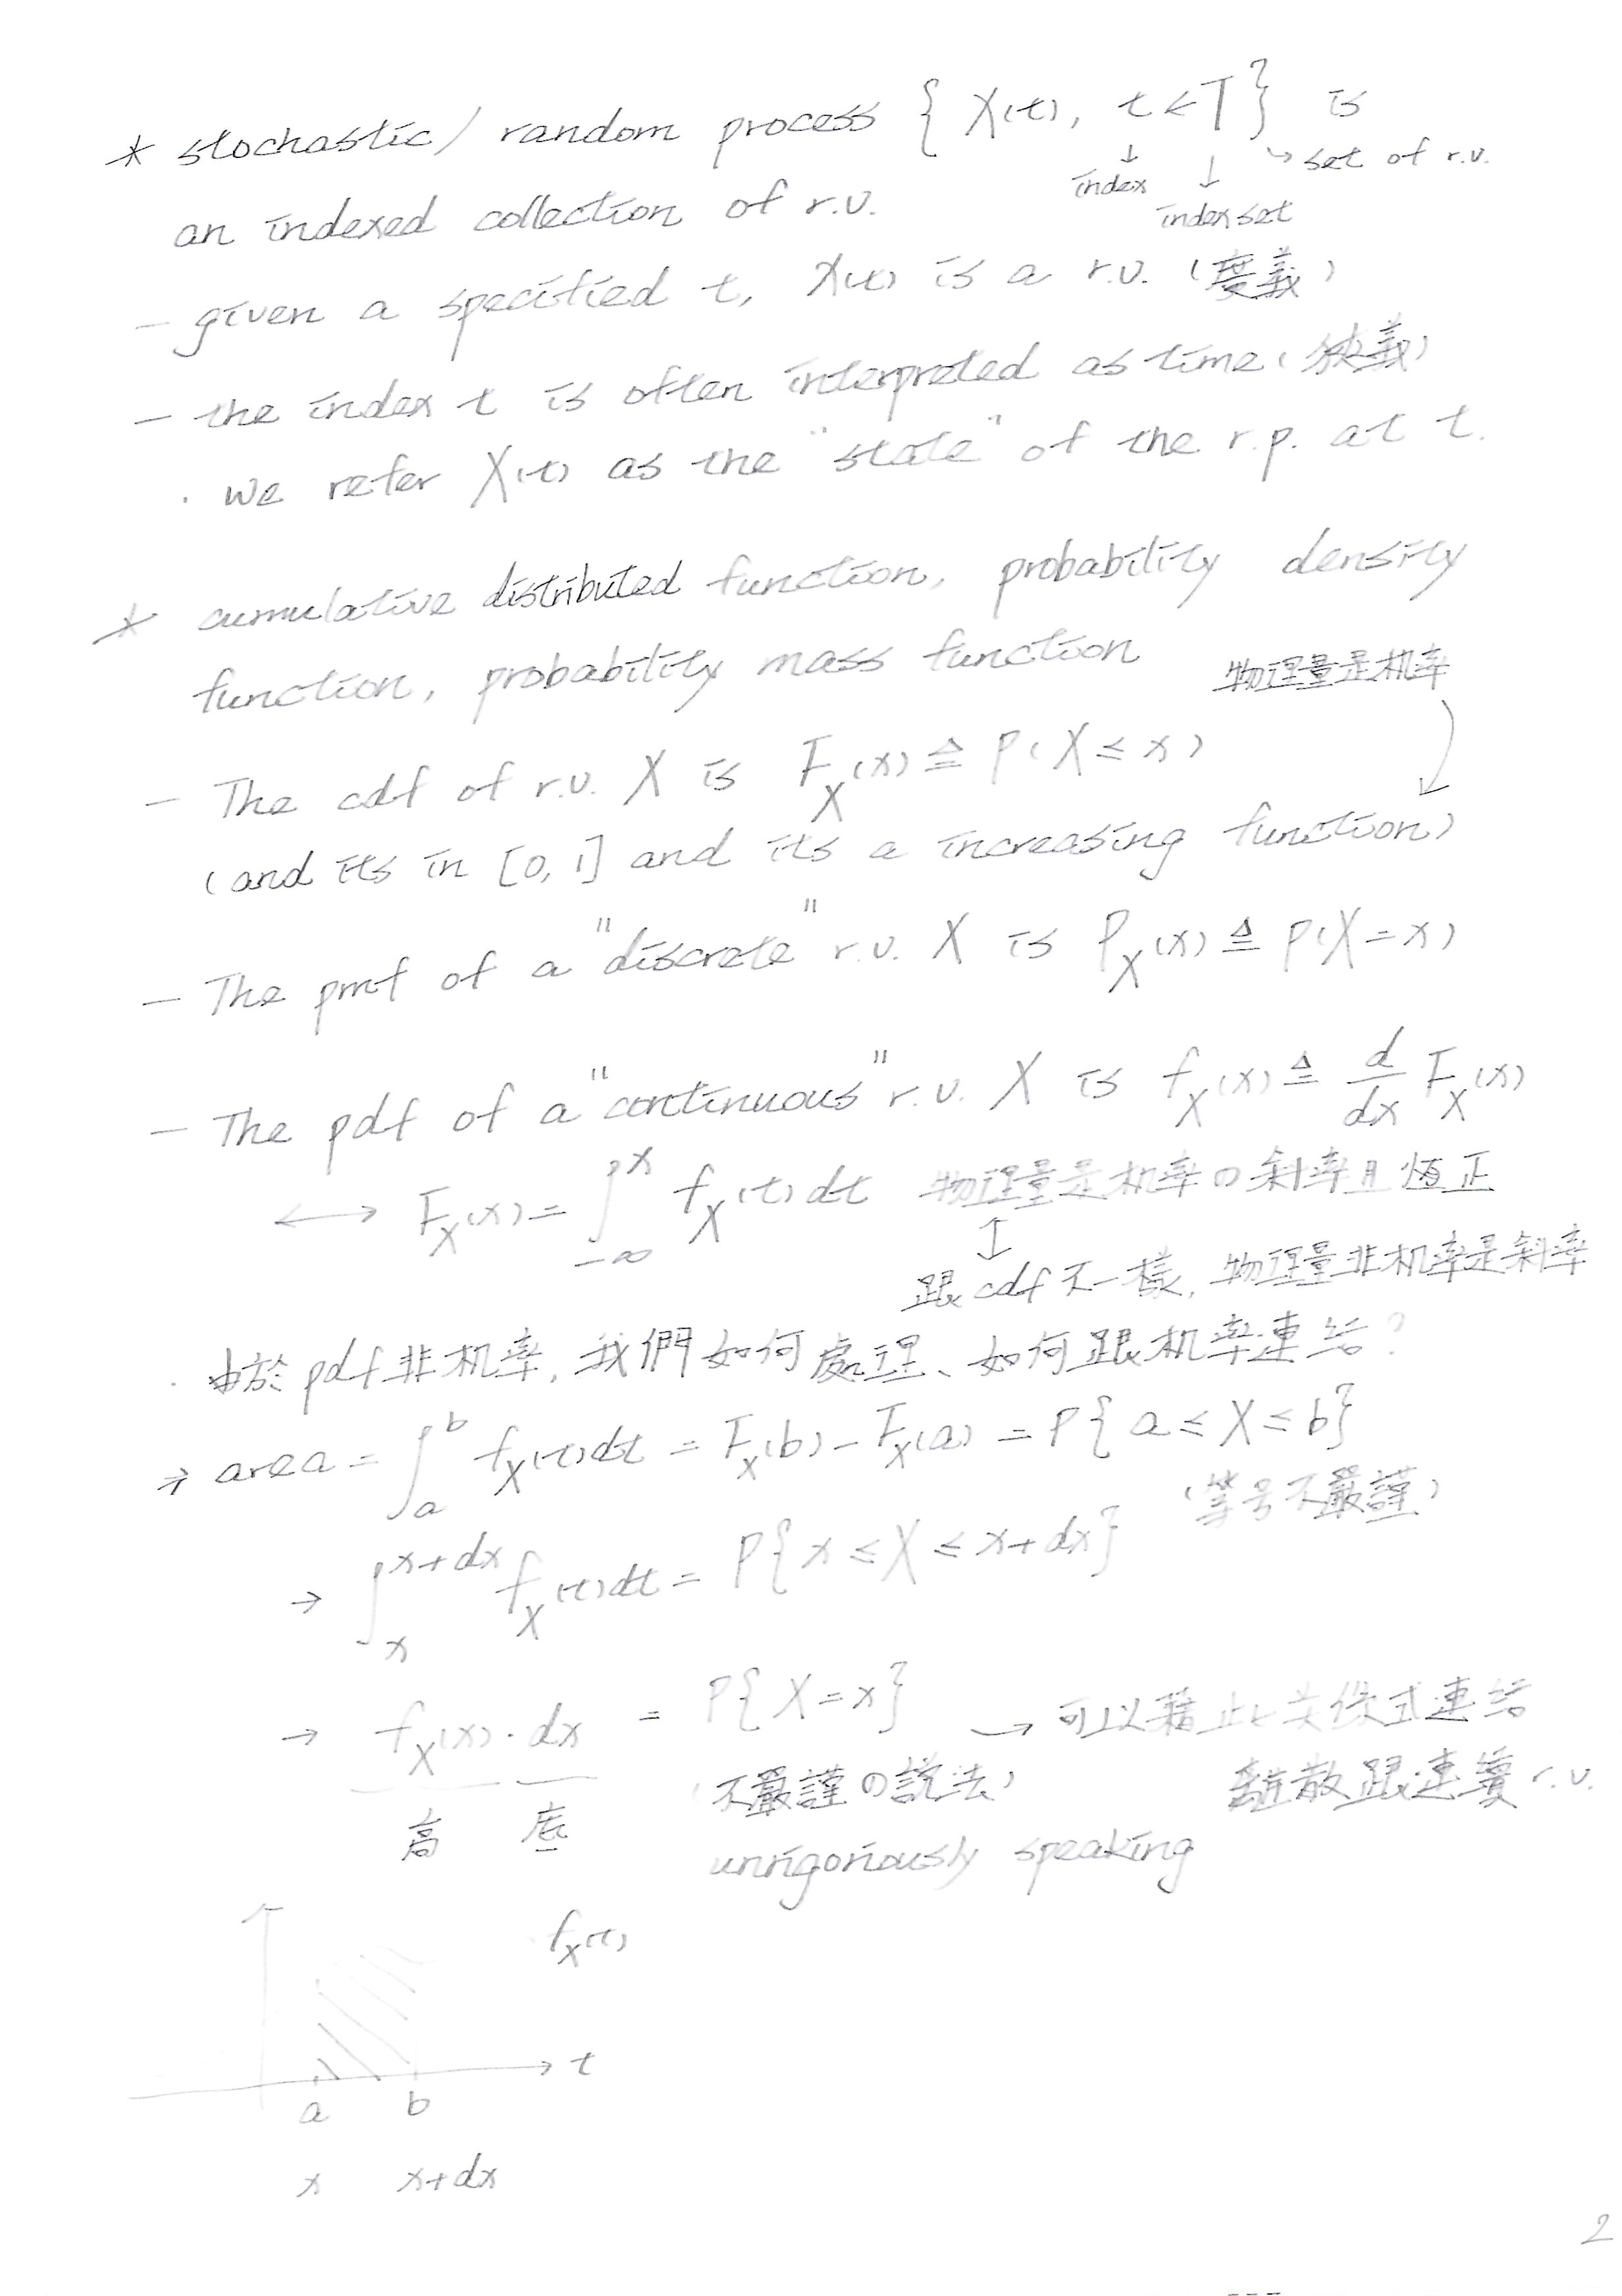 * stochastic/ random process { X(t), t ∈ T } is
↓ index ↓ index set ↘ set of r.v.
an indexed collection of r.v.
- given a specified t, X(t) is a r.v. (廣義)
- the index t is often interpreted as time (狹義)
· we refer X(t) as the "state" of the r.p. at t.
* cumulative distributed function, probability density
function, probability mass function
物理量是机率
- The cdf of r.v. X is F_X(x) ≜ P(X ≤ x)
(and its in [0, 1] and its a increasing function)
- The pmf of a "discrete" r.v. X is P_X(x) ≜ P(X = x)
- The pdf of a "continuous" r.v. X is f_X(x) ≜ d/dx F_X(x)
↔ F_X(x) = ∫_{-∞}^{x} f_X(t) dt 物理量是机率の斜率且恆正
↕
跟 cdf 不一樣, 物理量非机率是斜率
· 由於 pdf 非机率, 我們如何處理、如何跟机率連結?
→ area = ∫_a^b f_X(t) dt = F_X(b) - F_X(a) = P{ a ≤ X ≤ b }
(等号不嚴謹)
→ ∫_x^{x+dx} f_X(t) dt = P{ x ≤ X ≤ x+dx }
→ f_X(x) · dx = P{ X = x } → 可以藉此关係式連結
高 底 (不嚴謹の說法) 離散跟連續 r.v.
unrigoriously speaking
f_X(t)
t
a b
x x+dx
2